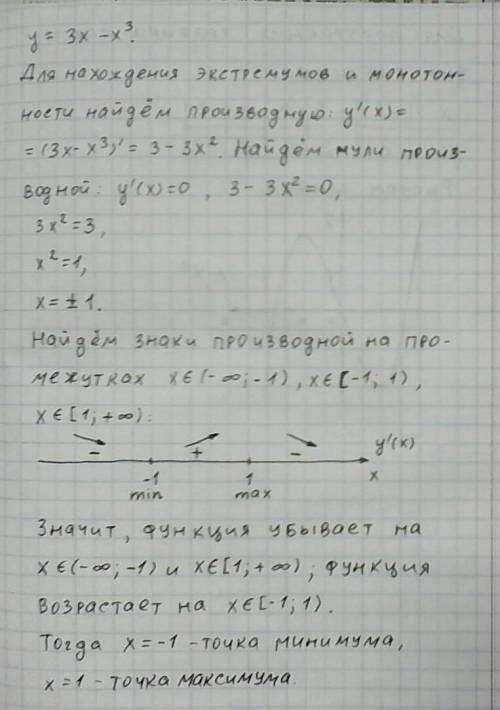 y = 3x - x³.
Для нахождения экстремумов и монотон-
ности найдём производную: y'(x)=
= (3x - x³)' = 3 - 3x². Найдём нули произ-
водной: y'(x)=0, 3 - 3x² = 0,
3x² = 3,
x² = 1,
x = ± 1.
Найдём знаки производной на про-
межутках x∈(-∞; -1), x∈[-1; 1),
x∈[1; +∞):
- + - y'(x)
-1 1 x
min max
Значит, функция убывает на
x∈(-∞; -1) и x∈[1; +∞); функция
возрастает на x∈[-1; 1).
Тогда x = -1 - точка минимума,
x = 1 - точка максимума.